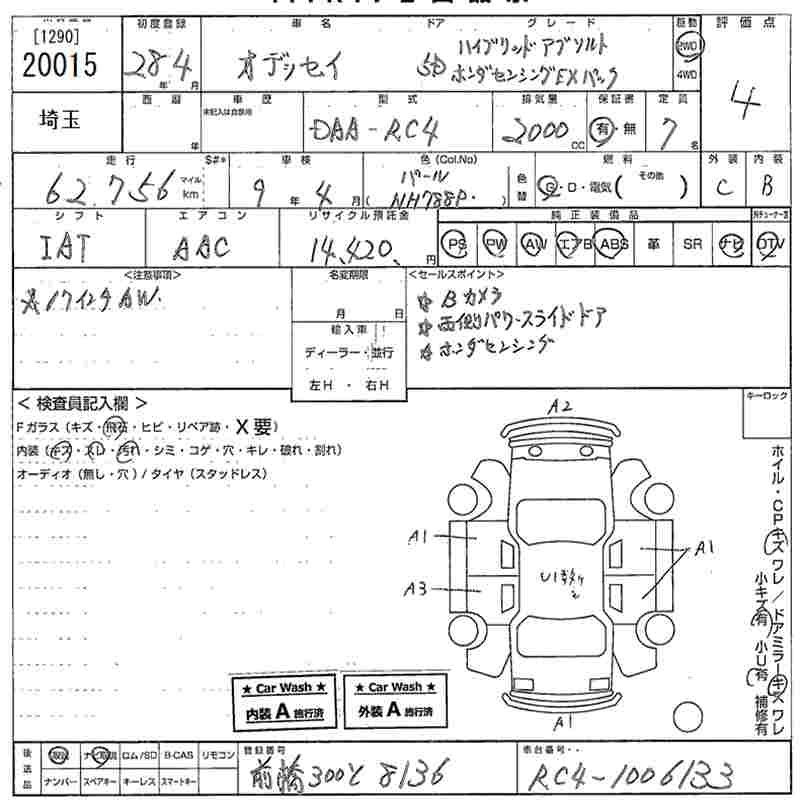 [1290]
20015
初度登録
車名
ドア
グレード
駆動
評価点
28年4月
オデッセイ
5D
ハイブリッド アブソルト
ホンダセンシングEXパック
2WD
4WD
4
埼玉
西暦
年
車歴
未記入は自家用
型式
DAA-RC4
排気量
2000cc
保証書
有・無
定員
7名
走行
62,756
マイル
km
S#*
車検
9年4月
色(Col.No)
パール
(NH788P.)
色替
燃料
G・D・電気( その他 )
外装
C
内装
B
シフト
IAT
エアコン
AAC
リサイクル預託金
14,420.円
純正装備品
PS PW AW エアB ABS 革 SR ナビ DTV
<注意事項>
名変期限
月 日
<セールスポイント>
17インチAW.
Bカメラ
両側パワースライドドア
ホンダセンシング
輸入車
ディーラー・並行
左H ・ 右H
< 検査員記入欄 >
Fガラス(キズ・飛石・ヒビ・リペア跡・X要)
内装(キズ・スレ・汚れ・シミ・コゲ・穴・キレ・破れ・割れ)
オーディオ(無し・穴)/タイヤ(スタッドレス)
キーロック
A2
A1
A1
A3
U1
A1
ホイル・CPキズワレ/ドアミラーキズワレ
小キズ有 小U有 補修有
★ Car Wash ★
内装 A 施行済
★ Car Wash ★
外装 A 施行済
後送品
取説
ナビ取説
ロム/SD
B-CAS
リモコン
ナンバー
スペアキー
キーレス
スマートキー
登録番号
前橋300と8136
車台番号
RC4-1006133